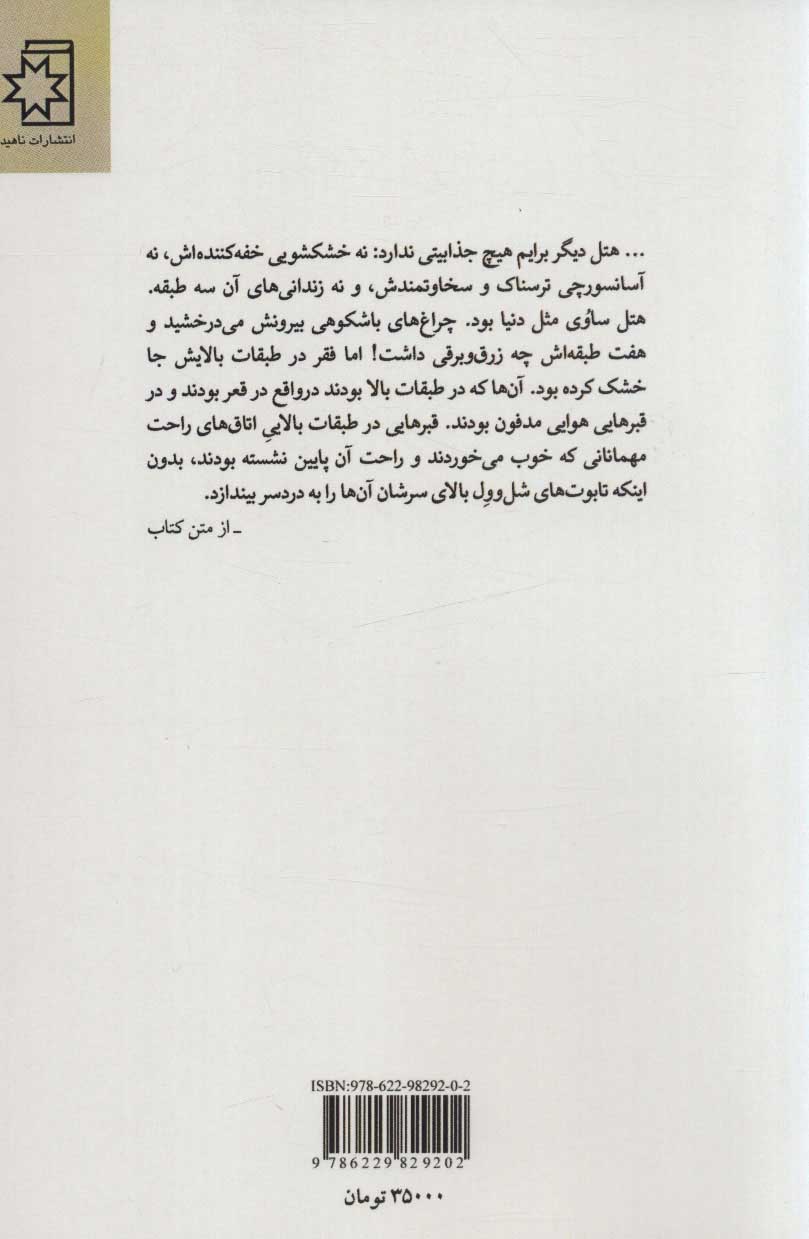 انتشارات ناهید
... هتل دیگر برایم هیچ جذابیتی ندارد: نه خشکشویی خفه‌کننده‌اش، نه
آسانسورچی ترسناک و سخاوتمندش، و نه زندانی‌های آن سه طبقه.
هتل ساوُی مثل دنیا بود. چراغ‌های باشکوهی بیرونش می‌درخشید و
هفت طبقه‌اش چه زرق‌وبرقی داشت! اما فقر در طبقات بالایش جا
خشک کرده بود. آن‌ها که در طبقات بالا بودند درواقع در قعر بودند و در
قبرهایی هوایی مدفون بودند. قبرهایی در طبقات بالاییِ اتاق‌های راحت
مهمانانی که خوب می‌خوردند و راحت آن پایین نشسته بودند، بدون
اینکه تابوت‌های شل‌ووِل بالای سرشان آن‌ها را به دردسر بیندازد.
ـ از متن کتاب
ISBN:978-622-98292-0-2
9 786229 829202
۳۵۰۰۰ تومان